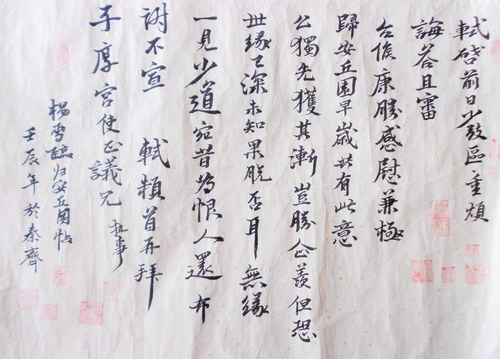 軾啓前日少致區重煩
誨答且審
台候康勝感慰兼極
歸安丘園早歲共有此意
公獨先獲其漸豈勝企羨但恐
世緣已深未知果脫否耳無緣
一見少道宿昔為恨人還布
謝不宣 軾頓首再拜
子厚宮使正議兄 執事
楊雪臨归安丘園帖
壬辰年於秦齊